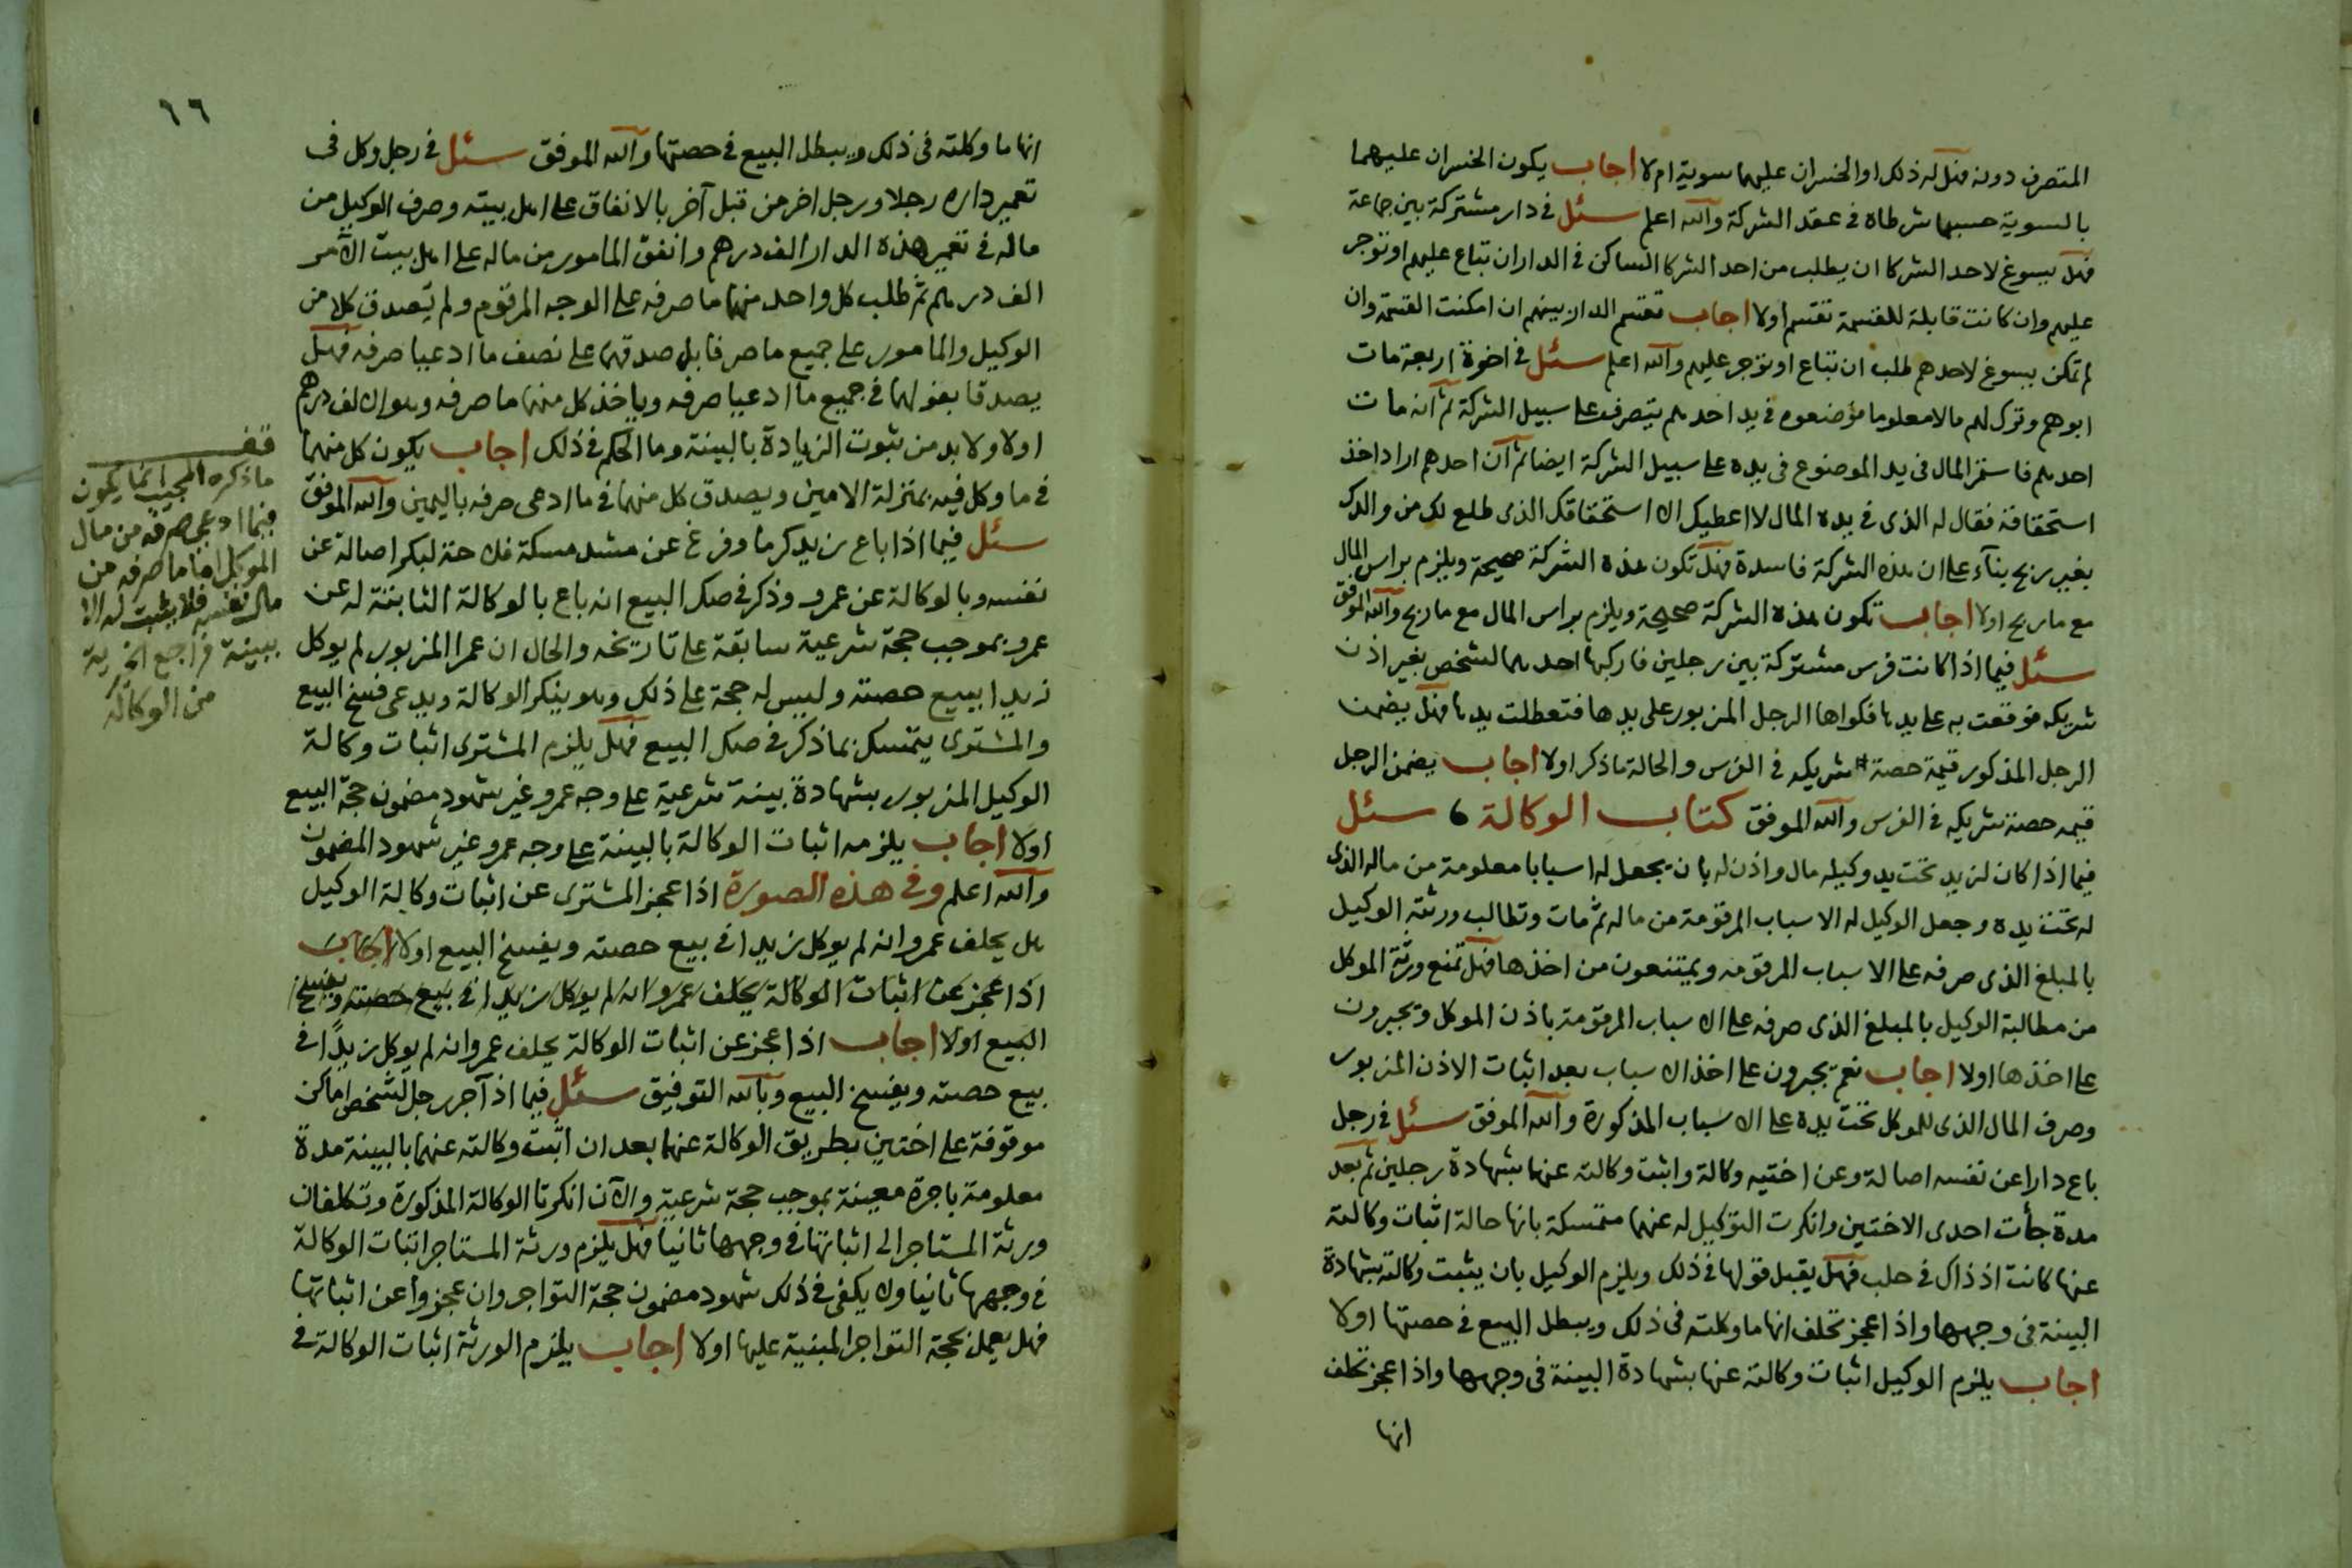 المتصرف دونه فهل له ذلك او الخسران عليهما سوية ام لا اجاب يكون الخسران عليهما
بالسوية حسبما شرطاه في عقد الشركة والله اعلم سئل في دار مشتركة بين جماعة
فهل يسوغ لاحد الشركا ان يطلب من احد الشركا الساكن في الدار ان تباع عليهم او توجر
عليهم وان كانت قابلة للقسمة تقسم اولا اجاب تقسم الدار بينهم ان امكنت القسمة وان
لم تمكن يسوغ لاحدهم طلب ان تباع او توجر عليهم والله اعلم سئل في اخوة اربعة مات
ابوهم وترك لهم مالا معلوما فوضعوه في يد احدهم يتصرف على سبيل الشركة ثم انه مات
احدهم فاستمر المال في يد الموضوع في يده على سبيل الشركة ايضا ثم ان احدهم اراد اخذ
استحقاقه فقال له الذي في يده المال لا اعطيك الا استحقاقك الذي طلع لك من والدك
بغير ربح بناء على ان هذه الشركة فاسدة فهل تكون هذه الشركة صحيحة ويلزم براس المال
مع ما ربح اولا اجاب تكون هذه الشركة صحيحة ويلزم براس المال مع ما ربح والله الموفق
سئل فيما اذا كانت فرس مشتركة بين رجلين فاركبها احدهما لشخص بغير اذن
شريكه فوقعت به على يدها فكواها الرجل المزبور على يدها فتعطلت يدها فهل يضمن
الرجل المذكور قيمة حصة شريكه في الفرس والحالة ما ذكر اولا اجاب يضمن الرجل
قيمه حصة شريكه في الفرس والله الموفق كتاب الوكالة ، سئل
فيما اذا كان لزيد تحت يد وكيله مال واذن له بان يجعل له اسبابا معلومة من ماله الذي
له تحت يده وجعل الوكيل له الاسباب المرقومة من ماله ثم مات وتطالب ورثته الوكيل
بالمبلغ الذي صرفه على الاسباب المرقومه ويمتنعون من اخذها فهل تمنع ورثة الموكل
من مطالبة الوكيل بالمبلغ الذي صرفه على الاسباب المرقومة باذن الموكل ويجبرون
على اخذها اولا اجاب نعم يجبرون على اخذ الاسباب بعد اثبات الاذن المزبور
وصرف المال الذي للموكل تحت يده على الاسباب المذكورة والله الموفق سئل في رجل
باع دارا عن نفسه اصالة وعن اختيه وكالة واثبت وكالته عنهما بشهادة رجلين ثم بعد
مدة جأت احدى الاختين وانكرت التوكيل له عنهما متمسكة بانها حالة اثبات وكالته
عنها كانت اذ ذاك في حلب فهل يقبل قولها في ذلك ويلزم الوكيل بان يثبت وكالته بشهادة
البينة في وجهها واذا عجز تحلف انها ما وكلته في ذلك ويبطل البيع في حصتها اولا
اجاب يلزم الوكيل اثبات وكالته عنها بشهادة البينة في وجهها واذا عجز تحلف
انها
٦٦
انها ما وكلته في ذلك ويبطل البيع في حصتها والله الموفق سئل في رجل وكل في
تعمير داره رجلا ورجل اخر من قبل آخر بالانفاق على اهل بيته وصرف الوكيل من
ماله في تعمير هذه الدار الف درهم وانفق المامور من ماله على اهل بيت الآمر
الف درهم ثم طلب كل واحد منهما ما صرفه على الوجه المرقوم ولم يصدق كلا من
الوكيل والمامور على جميع ما صرفا بل صدقهما على نصف ما ادعيا صرفه فهل
يصدقا بقولهما في جميع ما ادعيا صرفه وياخذ كل منهما ما صرفه وهو الالف درهم
اولا ولا بد من ثبوت الزيادة بالبينة وما الحكم في ذلك اجاب يكون كل منهما
في ما وكل فيه بمنزلة الامين ويصدق كل منهما في ما ادعى صرفه باليمين والله الموفق
سئل فيما اذا باع زيد كرما وفرغ عن مشد مسكة فلاحته لبكر اصالة عن
نفسه وبالوكالة عن عمرو وذكر في صك البيع انه باع بالوكالة الثابتة له عن
عمرو بموجب حجة شرعية سابقة على تاريخه والحال ان عمرا المزبور لم يوكل
زيدا ببيع حصته وليس له حجة على ذلك وهو ينكر الوكالة ويدعى فسخ البيع
والمشتري يتمسك بما ذكر في صك البيع فهل يلزم المشتري اثبات وكالة
الوكيل المزبور بشهادة بينة شرعية على وجه عمرو غير شهود مضمون حجة البيع
اولا اجاب يلزمه اثبات الوكالة بالبينة على وجه عمرو غير شهود المضمون
والله اعلم وفي هذه الصورة اذا عجز المشتري عن اثبات وكالة الوكيل
هل يحلف عمرو انه لم يوكل زيدا في بيع حصته ويفسخ البيع اولا اجاب
اذا عجز عن اثبات الوكالة يحلف عمرو انه لم يوكل زيدا في بيع حصته ويفسخ
البيع اولا اجاب اذا عجز عن اثبات الوكالة يحلف عمرو انه لم يوكل زيداً في
بيع حصته ويفسخ البيع وبالله التوفيق سئل فيما اذا آجر رجل لشخص اماكن
موقوفة على اختين بطريق الوكالة عنهما بعد ان اثبت وكالته عنهما بالبينة مدة
معلومة باجرة معينة بموجب حجة شرعية والآن انكرتا الوكالة المذكورة وتكلفان
ورثة المستاجر الى اثباتها في وجههما ثانيا فهل يلزم ورثة المستاجر اثبات الوكالة
في وجههما ثانيا ولا يكفى في ذلك شهود مضمون حجة التواجر وان عجزوا عن اثباتها
فهل يعمل بحجة التواجر المبنية عليها اولا اجاب يلزم الورثة اثبات الوكالة في
قف
ما ذكره المجيب انما يكون
فيما ادعى صرفه من مال
الموكل اما ما صرفه من
مال نفسه فلا يثبت له الا
ببينة فراجع الخيرية
من الوكالة